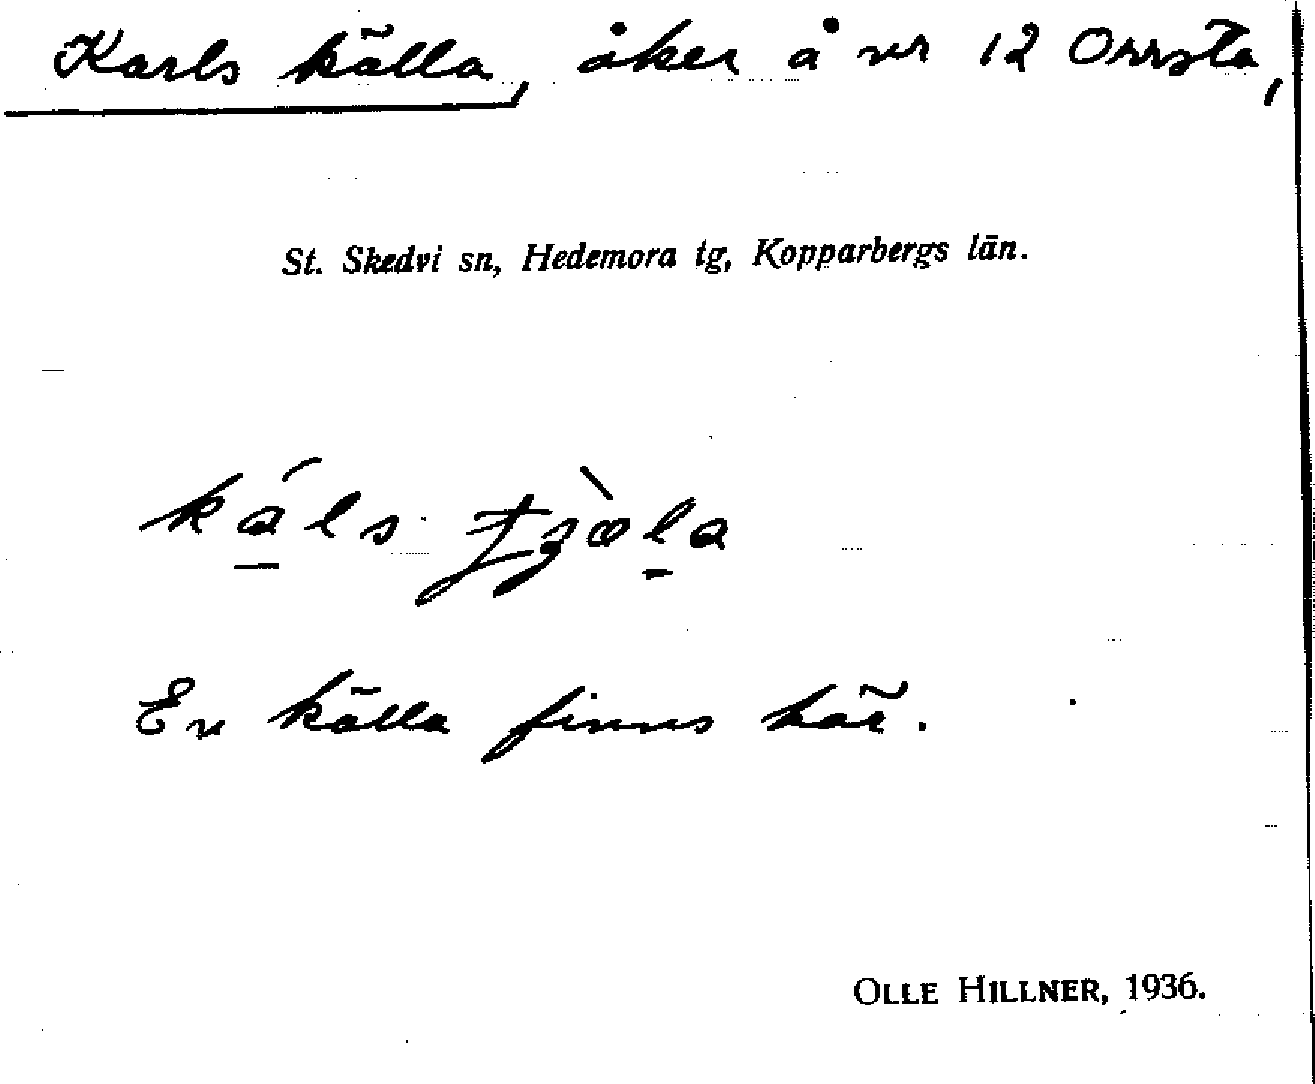 Karls källa, åker å nr 12 Orrsta,
St. Skedvi sn, Hedemora tg, Kopparbergs län.
En källa finns här.
OLLE HILLNER, 1936.